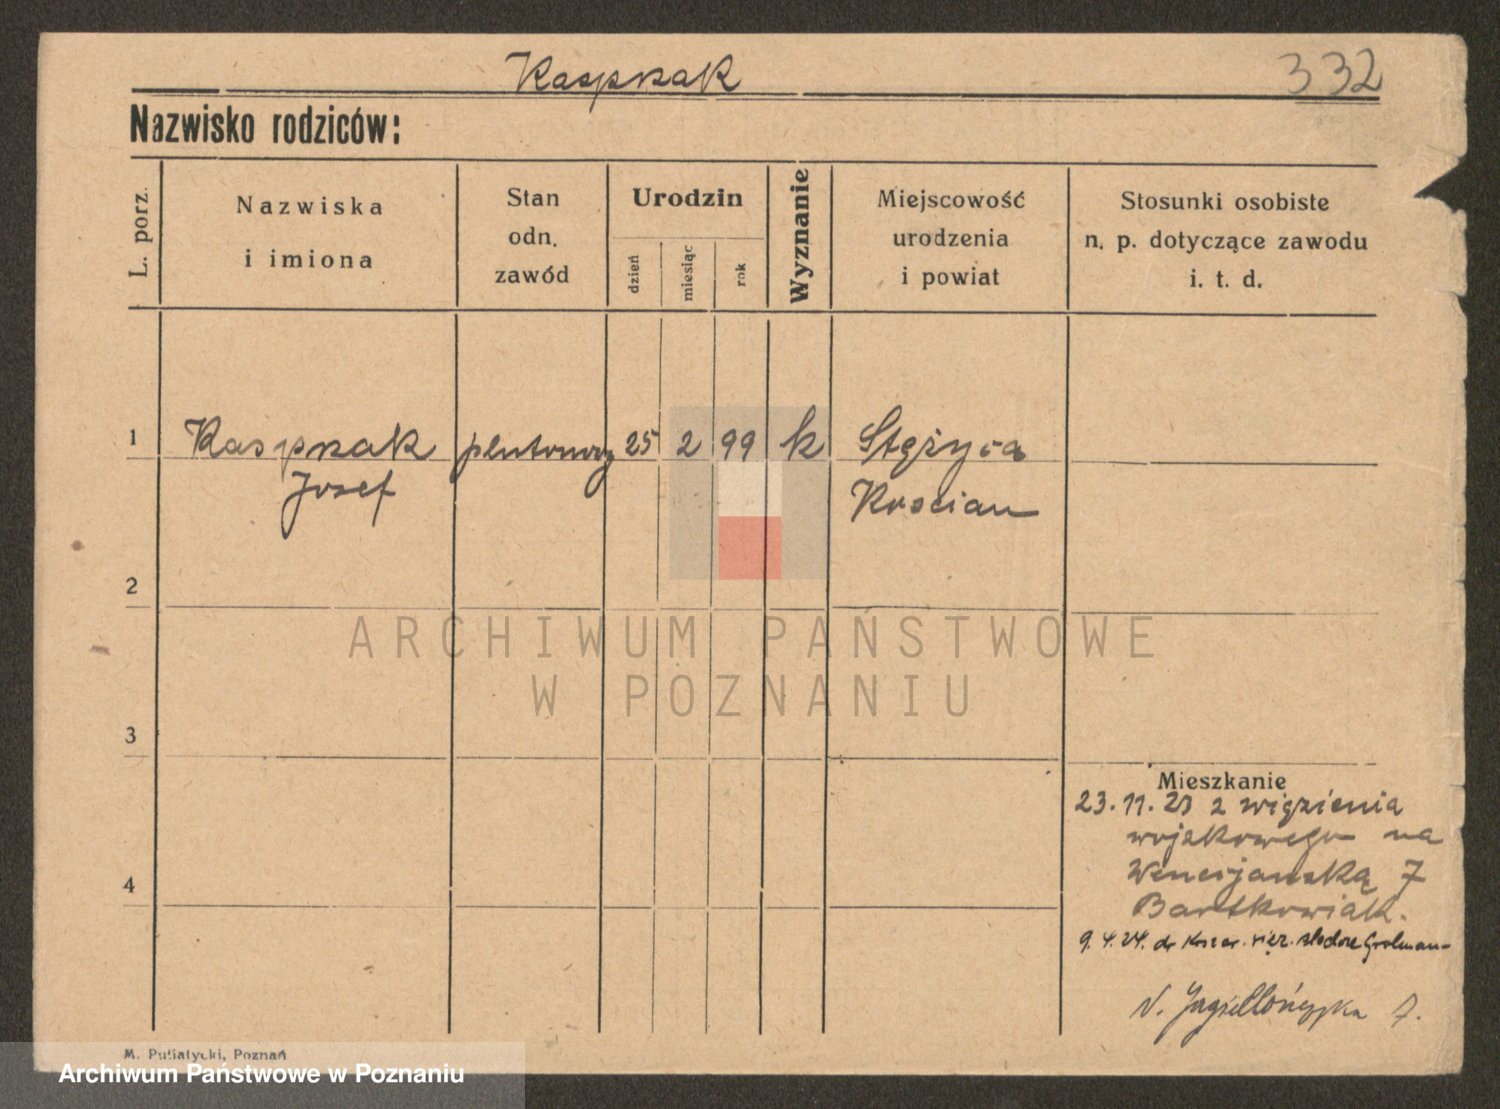 Kasprzak
332
Nazwisko rodziców:
L. porz.
Nazwiska
i imiona
Stan
odn.
zawód
Urodzin
dzień
miesiąc
rok
Wyznanie
Miejscowość
urodzenia
i powiat
Stosunki osobiste
n. p. dotyczące zawodu
i. t. d.
1 Kasprzak plutonowy 25 2 99 k Stężyca
Josef Kościan
2
ARCHIWUM PAŃSTWOWE
W POZNANIU
3
Mieszkanie
23.11.23 z więzienia
wojskowego na
Wenecjanską 7
Bartkowiak.
4
9.4.24. do Koszar.
N. Jagiellończyka 7.
M. Putiatycki, Poznań
Archiwum Państwowe w Poznaniu